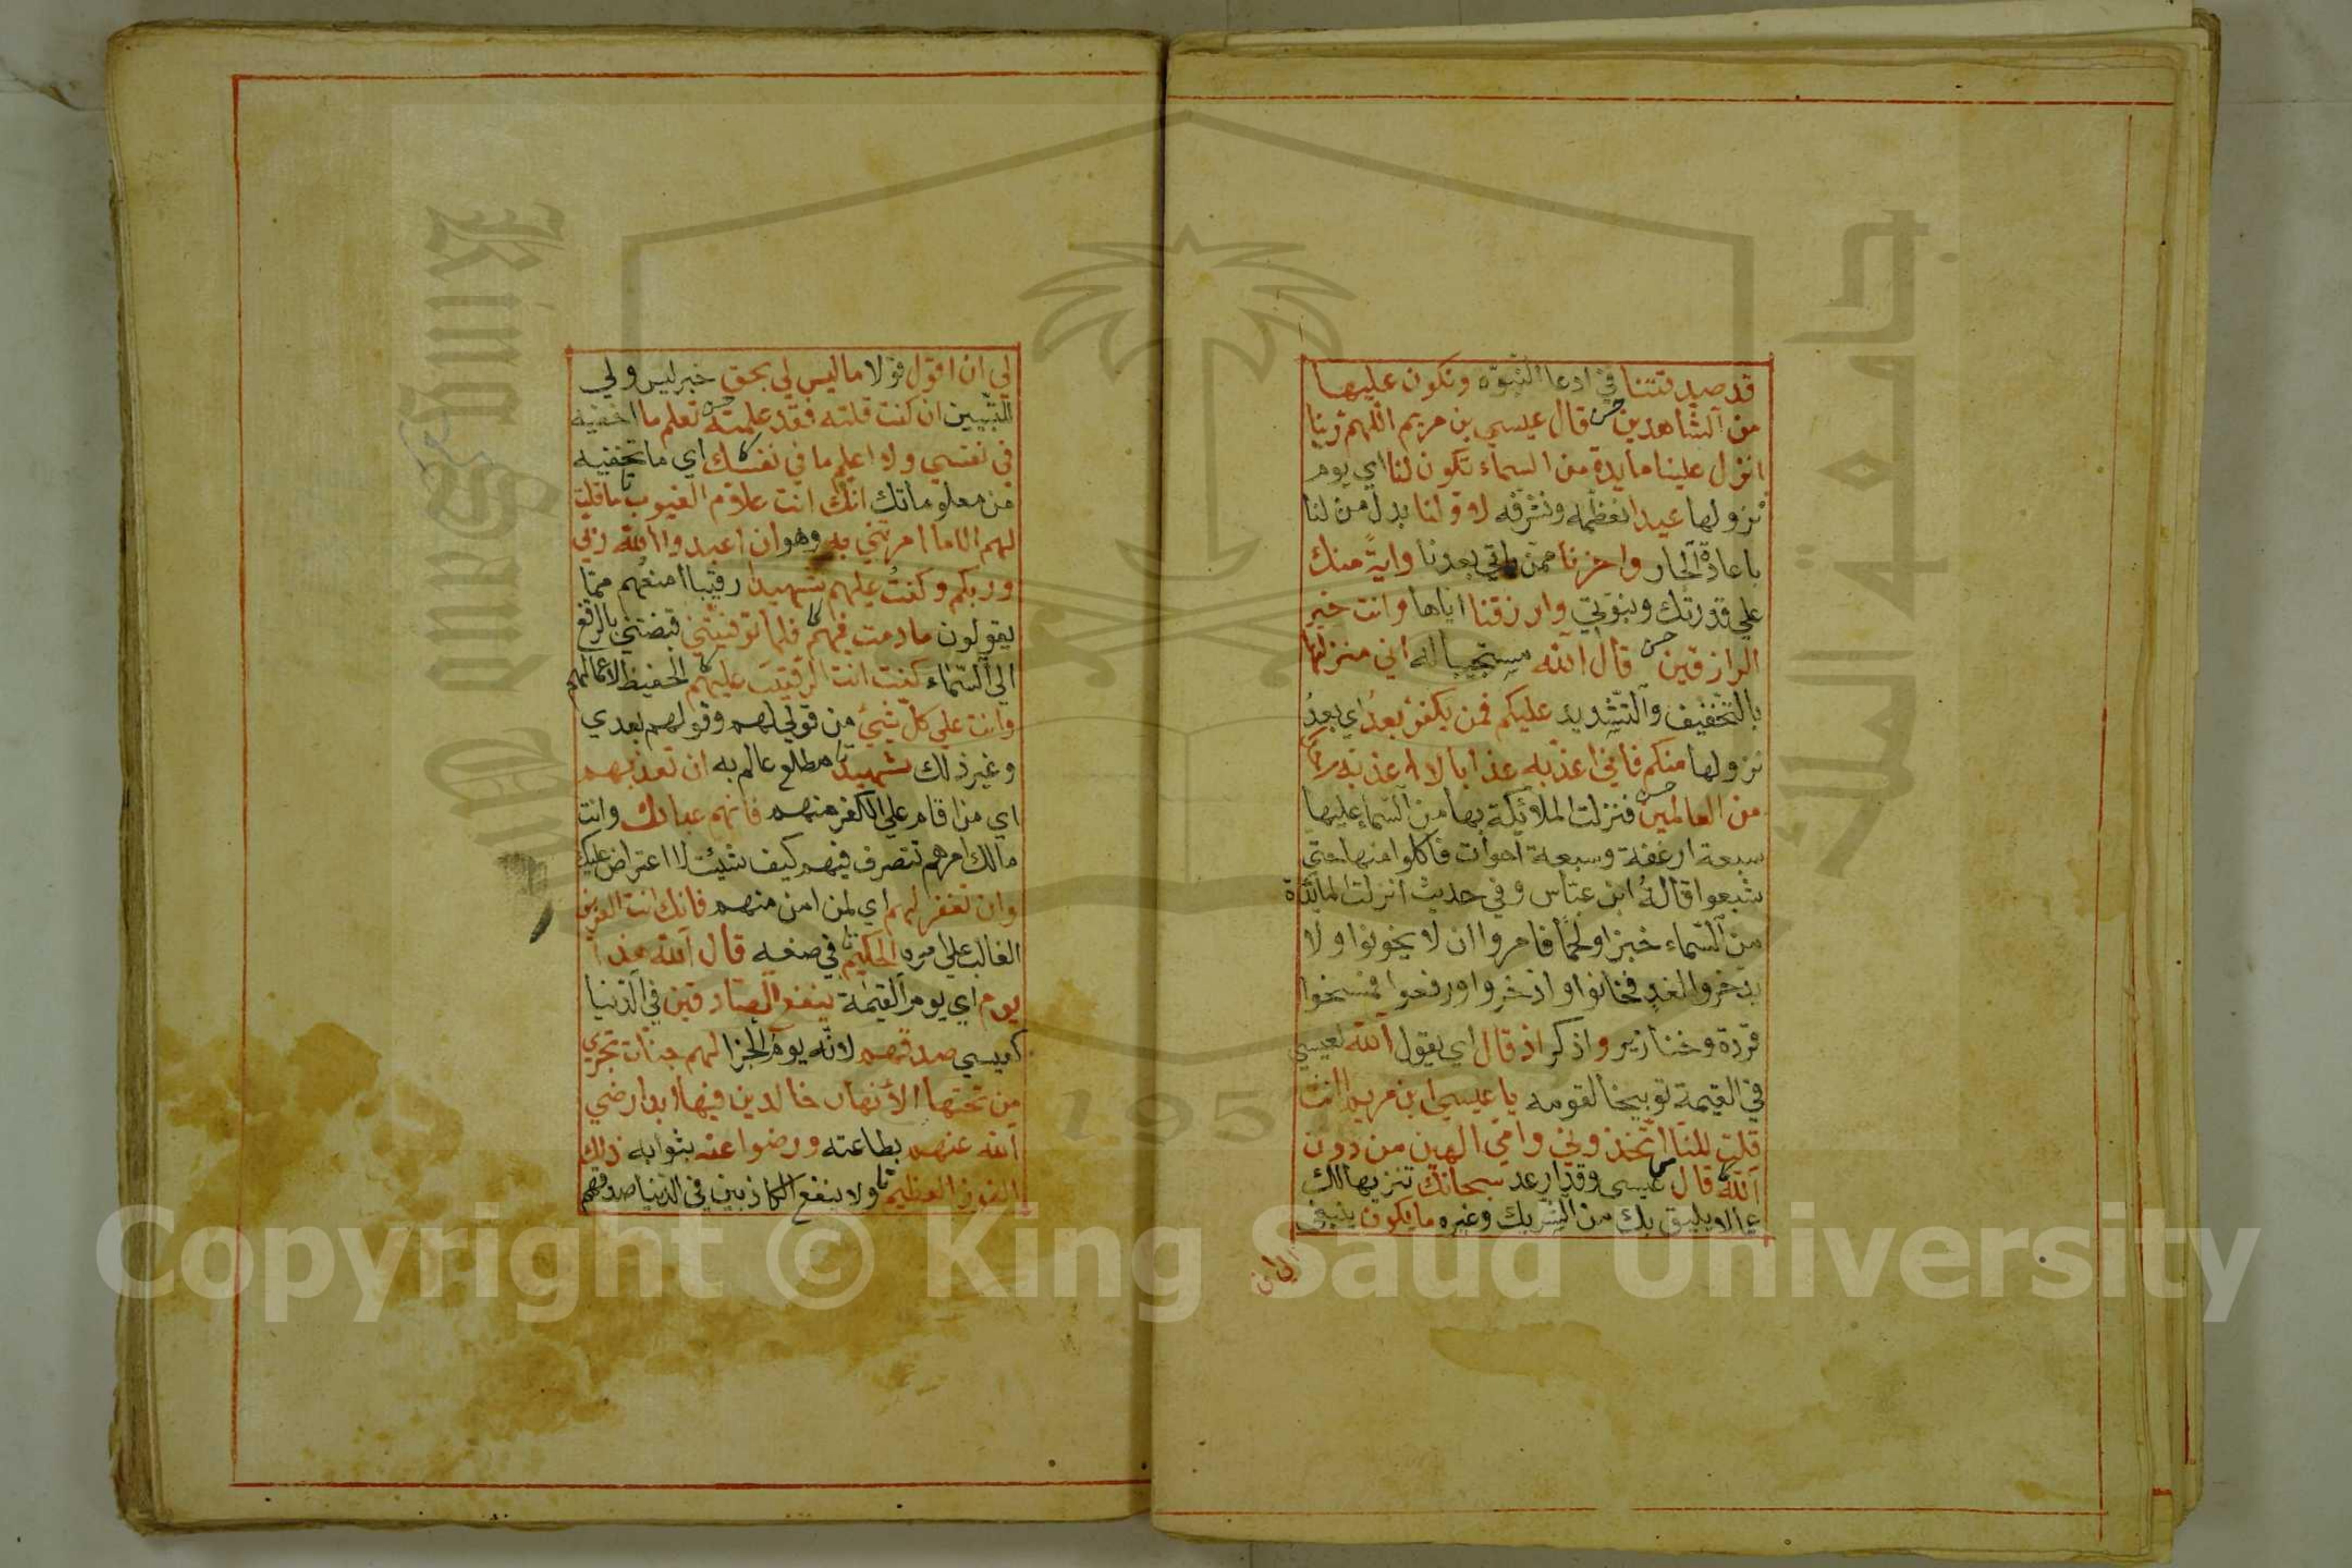 قد صدقتنا في ادعا النبوه ونكون عليها
من الشاهدين قال عيسي بن مريم اللهم ربنا
انزل علينا مايدة من السماء تكون لنا اي يوم
نزولها عيدا نعظمه ونشرفه لاولنا بدل من لنا
باعادة الجار واخرنا ممن ياتي بعدنا واية منك
علي قدرتك ونبوتي وارزقنا اياها وانت خير
الرازقين قال الله مستجيبا له اني منزلها
بالتخفيف والتشديد عليكم فمن يكفر بعد اي بعد
نزولها منكم فاني اعذبه عذابا لا اعذبه
من العالمين فنزلت الملائكة بها من السماء عليها
سبعة ارغفة وسبعة احوات فاكلوا منها حتي
شبعوا قاله ابن عباس وفي حديث انزلت المائدة
من السماء خبزا ولحما فامروا ان لا يخونوا ولا
يدخروا لغد فخانوا واذخروا ورفعوا فمسخوا
قردة وخنازير واذكر اذ قال اي يقول الله لعيسي
في القيمة توبيخا لقومه يا عيسي ابن مريم اانت
قلت للنا اتخذوني وامي الهين من دون
الله قال عيسي وقد ارعد سبحانك تنزيها لك
عما لا يليق بك من الشريك وغيره ما يكون ينبغي
لي ان
لي ان اقول قولا ما ليس لي بحق خبر ليس ولي
للتبيين ان كنت قلته فقد علمته تعلم ما اخفيه
في نفسي ولا اعلم ما في نفسك اي ما تخفيه
من معلوماتك انك انت علام الغيوب ما قلت
لهم الا ما امرتني به وهو ان اعبدوا الله ربي
وربكم وكنت عليهم شهيدا رقيبا امنعهم مما
يقولون ما دمت فيهم فلما توفيتني قبضتني بالرفع
الي السماء كنت انت الرقيب عليهم الحفيظ لاعمالهم
وانت علي كل شيئ من قولي لهم وقولهم بعدي
وغير ذلك شهيد مطلع عالم به ان تعذبهم
اي من اقام علي الكفر منهم فانهم عبادك وانت
مالك امرهم تتصرف فيهم كيف شيئت لا اعتراض عليك
وان تغفر لهم اي لمن امن منهم فانك انت العزيز
الغالب علي امره الحكيم في صنعه قال الله هذا
يوم اي يوم القيمة ينفع الصادقين في الدنيا
كعيسي صدقهم لانه يوم الجزا لهم جنات تجري
من تحتها الانهار خالدين فيها ابدا رضي
الله عنهم بطاعته ورضوا عنه بثوابه ذلك
الفوز العظيم ولا ينفع الكاذبين في الدنيا صدقهم
King Saud University
جامعة الملك
195
Copyright © King Saud University